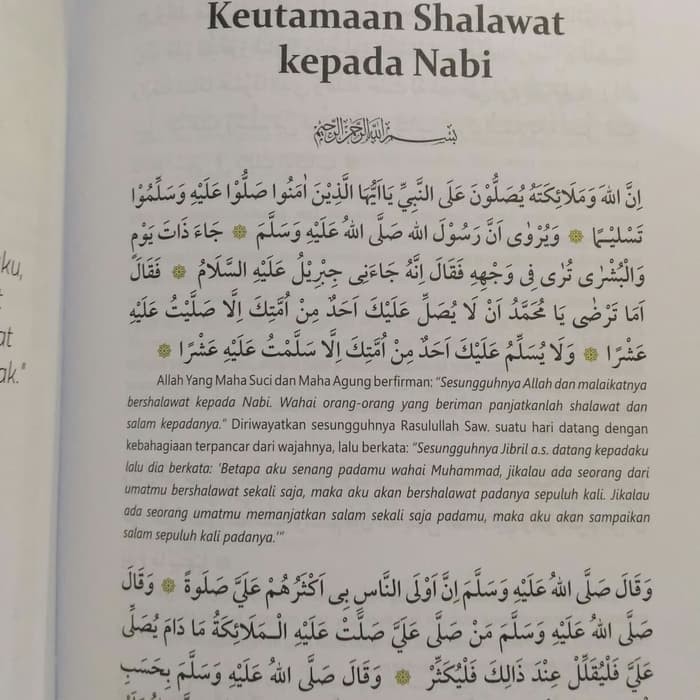 Keutamaan Shalawat
kepada Nabi
بسم الله الرحمن الرحيم
اِنَّ اللهَ وَمَلَائِكَتَهُ يُصَلُّوْنَ عَلَى النَّبِيِّ يَااَيُّهَا الَّذِيْنَ اٰمَنُوْا صَلُّوْا عَلَيْهِ وَسَلِّمُوْا
تَسْلِيْمًا ۞ وَيُرْوٰى اَنَّ رَسُوْلَ اللهِ صَلَّى اللهُ عَلَيْهِ وَسَلَّمَ ۞ جَاءَ ذَاتَ يَوْمٍ
وَالْبُشْرٰى تُرٰى فِى وَجْهِهِ فَقَالَ اِنَّهُ جَاءَنِى جِبْرِيْلُ عَلَيْهِ السَّلَامُ ۞ فَقَالَ
اَمَا تَرْضٰى يَا مُحَمَّدُ اَنْ لَا يُصَلِّ عَلَيْكَ اَحَدٌ مِنْ اُمَّتِكَ اِلَّا صَلَّيْتُ عَلَيْهِ
عَشْرًا ۞ وَلَا يُسَلِّمُ عَلَيْكَ اَحَدٌ مِنْ اُمَّتِكَ اِلَّا سَلَّمْتُ عَلَيْهِ عَشْرًا ۞
Allah Yang Maha Suci dan Maha Agung berfirman: "Sesungguhnya Allah dan malaikatnya
bershalawat kepada Nabi. Wahai orang-orang yang beriman panjatkanlah shalawat dan
salam kepadanya." Diriwayatkan sesungguhnya Rasulullah Saw. suatu hari datang dengan
kebahagiaan terpancar dari wajahnya, lalu berkata: "Sesungguhnya Jibril a.s. datang kepadaku
lalu dia berkata: 'Betapa aku senang padamu wahai Muhammad, jikalau ada seorang dari
umatmu bershalawat sekali saja, maka aku akan bershalawat padanya sepuluh kali. Jikalau
ada seorang umatmu memanjatkan salam sekali saja padamu, maka aku akan sampaikan
salam sepuluh kali padanya.'"
وَقَالَ صَلَّى اللهُ عَلَيْهِ وَسَلَّمَ اِنَّ اَوْلَى النَّاسِ بِى اَكْثَرُهُمْ عَلَيَّ صَلَوةً ۞ وَقَالَ
صَلَّى اللهُ عَلَيْهِ وَسَلَّمَ مَنْ صَلَّى عَلَيَّ صَلَّتْ عَلَيْهِ الْمَلَائِكَةُ مَا دَامَ يُصَلِّى
عَلَيَّ فَلْيُقَلِّلْ عِنْدَ ذَالِكَ فَلْيُكَثِّرْ ۞ وَقَالَ صَلَّى اللهُ عَلَيْهِ وَسَلَّمَ بِحَسْبِ